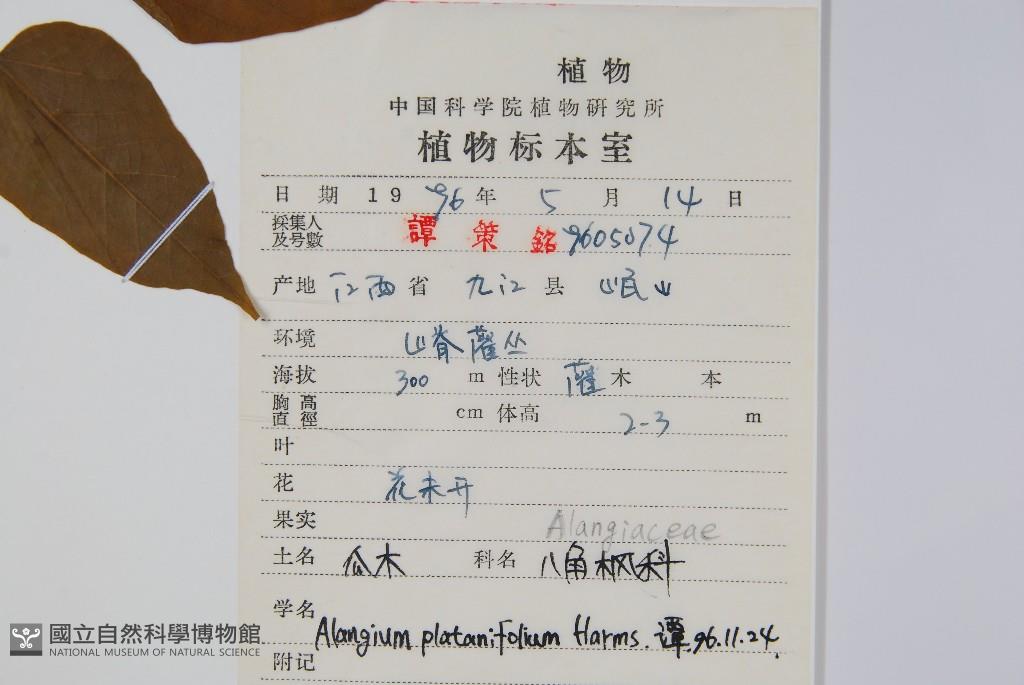 植物
中国科学院植物研究所
植物标本室
日期 1996年 5月 14日
採集人及号數 譚策銘 9605074
产地 江西省 九江县 岷山
环境 山脊灌丛
海拔 300 m 性状 灌木 本
胸高直徑 cm 体高 2-3 m
叶
花 花未开
果实 Alangiaceae
土名 瓜木 科名 八角枫科
学名 Alangium platanifolium Harms. 譚. 96.11.24.
附记
國立自然科學博物館
NATIONAL MUSEUM OF NATURAL SCIENCE